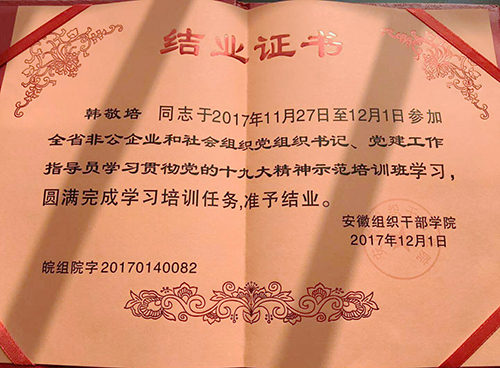 结业证书
韩敬培 同志于2017年11月27日至12月1日参加
全省非公企业和社会组织党组织书记、党建工作
指导员学习贯彻党的十九大精神示范培训班学习，
圆满完成学习培训任务,准予结业。
安徽组织干部学院
2017年12月1日
皖组院字20170140082